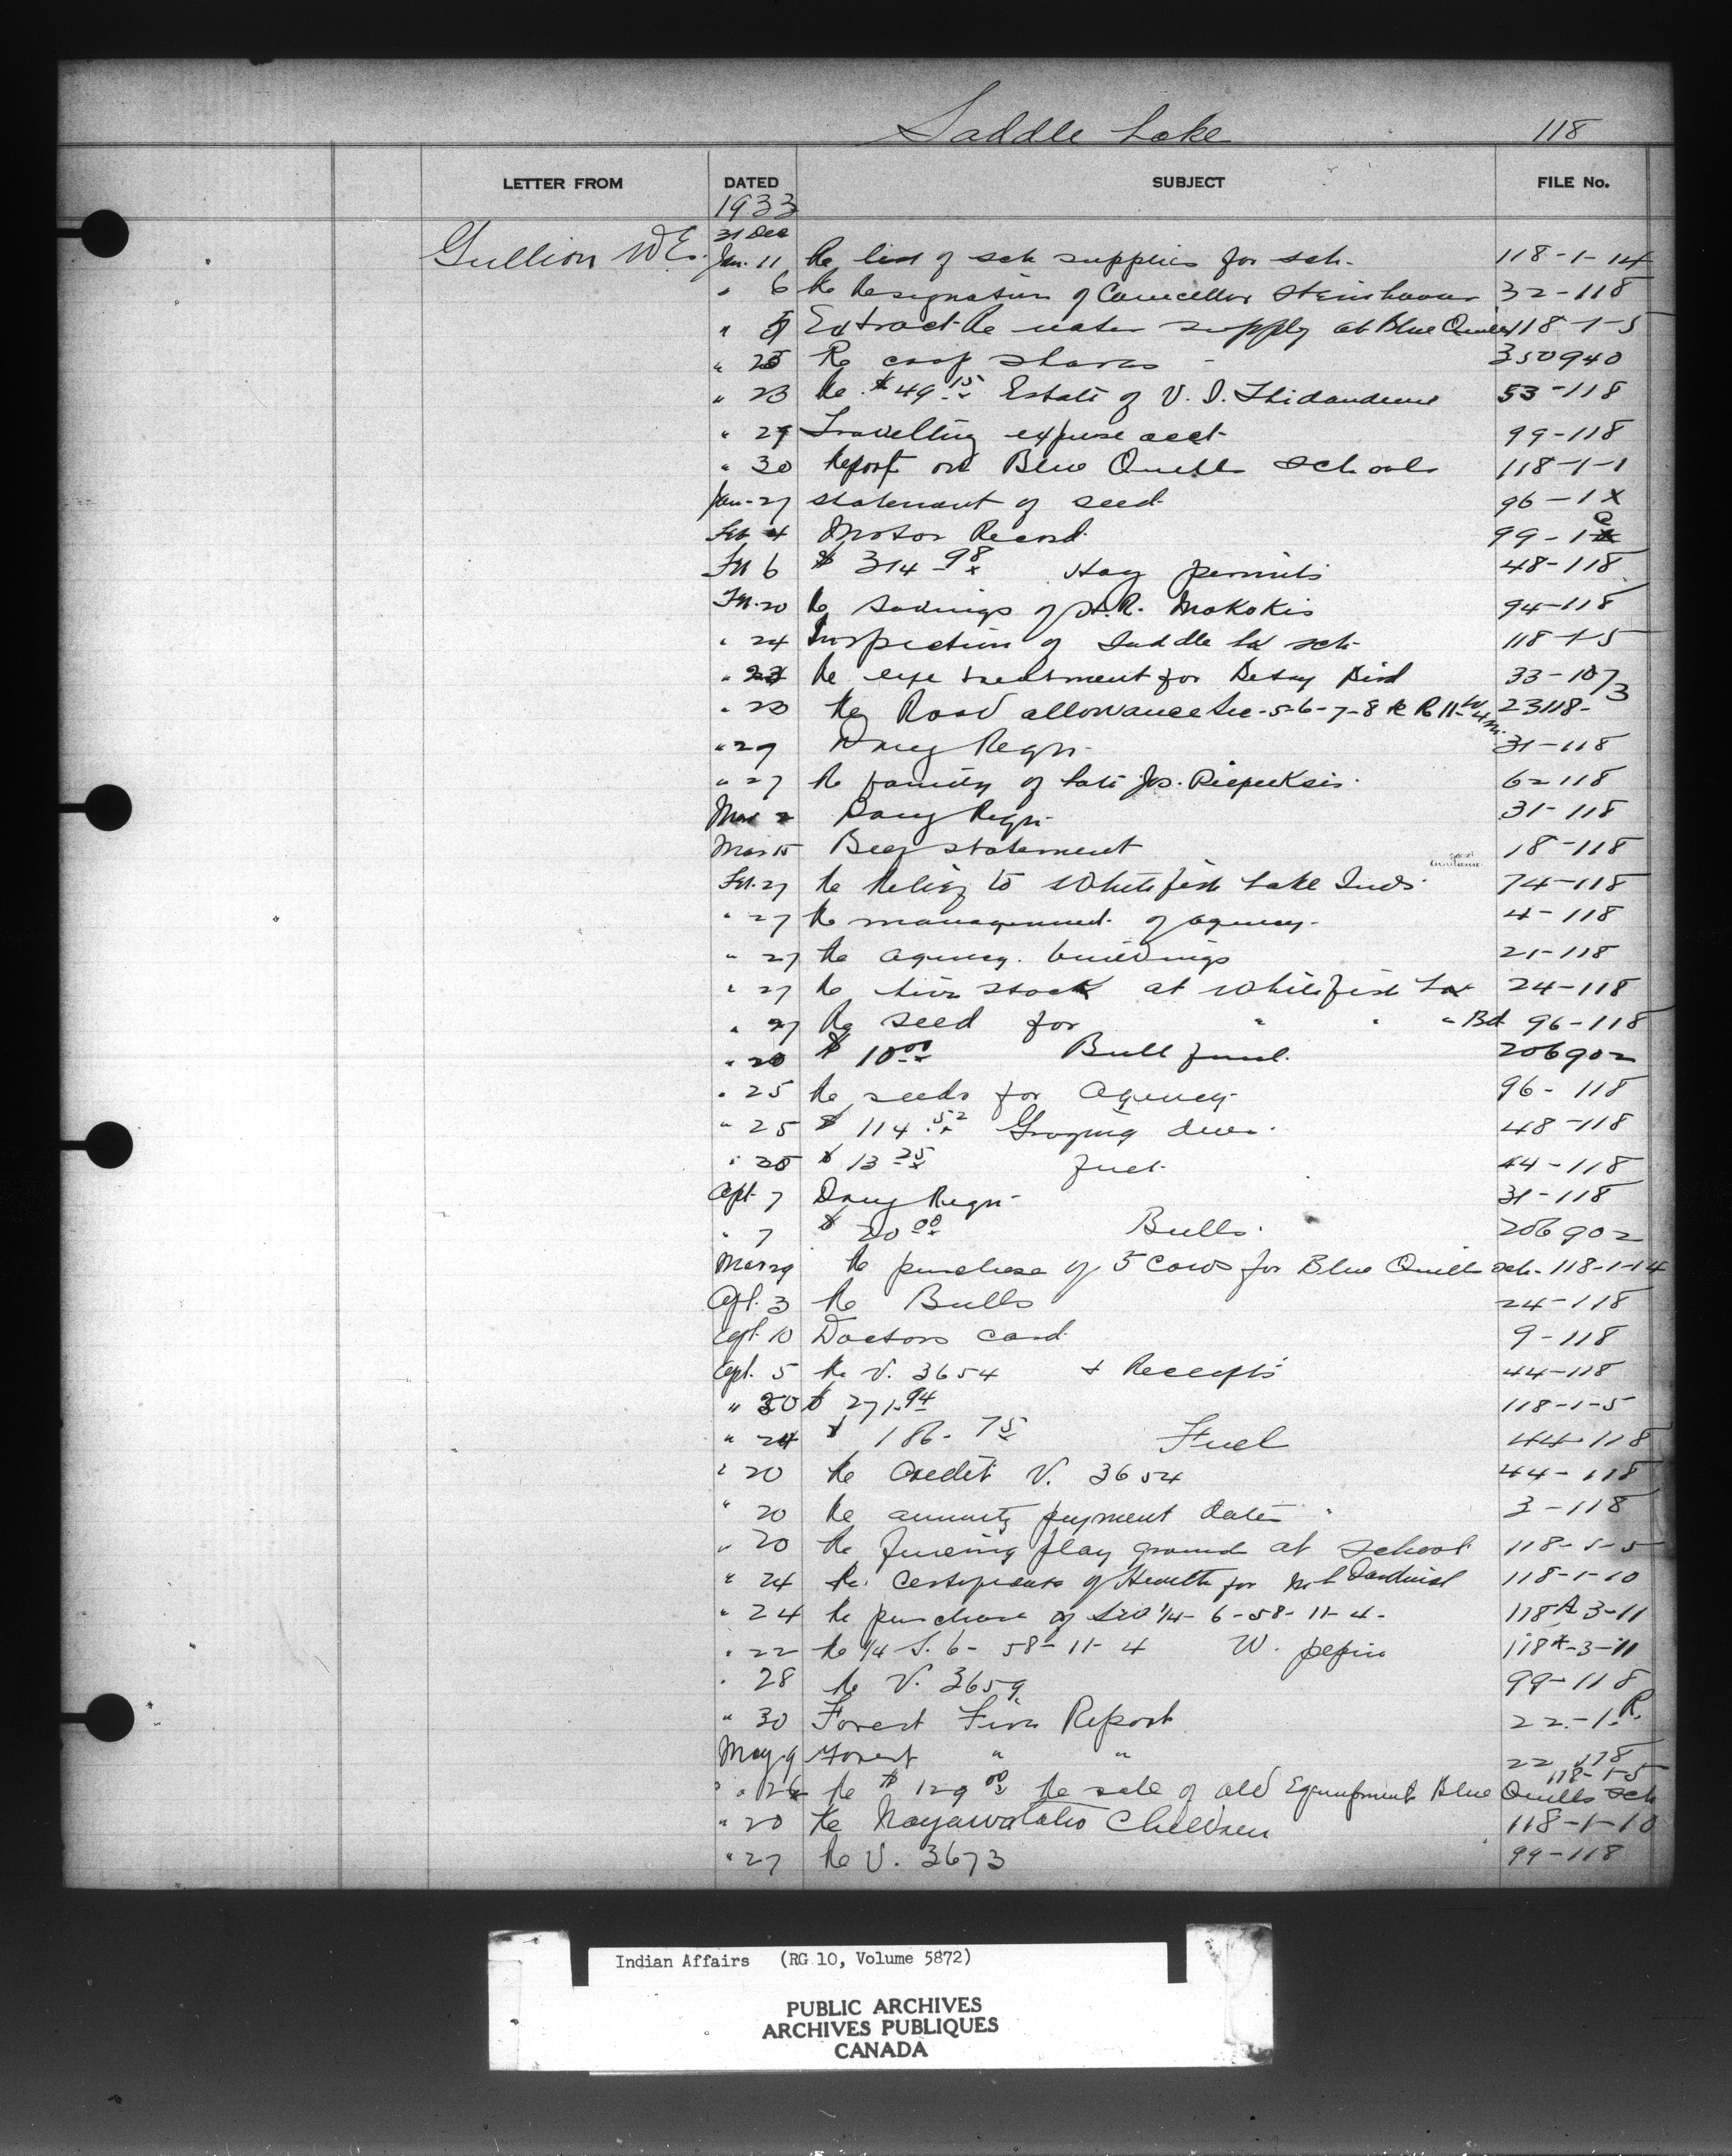 Saddle Lake 118
LETTER FROM DATED SUBJECT FILE No.
1933
31 Dec
Gullion W E. Jan. 11 Re list of sch supplies for sch. 118-1-14
" 6 Re Resignation of Councellor Steinhauer 32-118
" Extract Re water supply at Blue Quills 118-1-5
" 25 Re coop shares - 350940
" 23 Re $49.15 Estate of V. J. 53-118
" 29 Travelling expense acct. 99-118
" 30 Report on Blue Quills School 118-1-1
Jan-27 statement of seed 96-1 X
Feb 4 Motor Record 99-1
Feb 6 $ 314 98/x Hay permits 48-118
Feb. 20 Re Savings of R. Mokokis 94-118
" 24 Inspection of Saddle Lk sch. 118-1-5
" Re eye treatment for Betsy Bird 33-10/3
" 23 Re Road allowance Sec-5-6-7-8 R 11-W4m. 23118-
" 29 Drug Reqn. 31-118
" 27 Re family of late Jos. 62 118
Mar 2 Drug Reqn. 31-118
Mar 15 Beef statement 18-118
Feb. 27 Re Relief to Whitefish Lake Inds. 74-118
" 27 Re management of agency. 4-118
" 27 Re agency. buildings 21-118
" 27 Re live stock at Whitefish Lk 24-118
" 27 Re seed for " " " Bd 96-118
" 20 $ 10 00/x Bull fund. 206902
" 25 Re seeds for Agency 96-118
" 25 $ 114.52/x Grazing dues. 48-118
" 25 $ 13 25/x fuel. 44-118
Apl. 7 Drug Reqn - 31-118
" 7 $ 20 00/x Bulls. 206902
Mar 29 Re purchase of 5 Cows for Blue Quills sch. 118-1-14
Apl. 3 Re Bulls 24-118
Apl. 10 Doctors card 9-118
Apl. 5 Re V. 3654 & Receipts 44-118
" 20 $ 271.94 118-1-5
" 24 $ 186.75/x Fuel 44-118
" 20 Re Credit V. 3654 44-118
" 20 Re annuity payment dates 3-118
" 20 Re fencing play ground at school 118-1-5
" 24 Re. Certificate of Health for Cardinal 118-1-10
" 24 Re purchase of 1/4-6-58-11-4- 118A 3-11
" 22 Re 1/4 S. 6-58-11-4 W. pepin 118A-3-11
" 28 Re V. 3659 99-118
" 30 Forest Fire Report 22-1-R.
May 9 Forest " " 22 118
118-1-5
" 26 Re $ 129 00/x Re sale of old Equipment Blue Quills Sch
" 20 Re Children 118-1-10
" 27 Re V. 3673 99-118
Indian Affairs (RG 10, Volume 5872)
PUBLIC ARCHIVES
ARCHIVES PUBLIQUES
CANADA